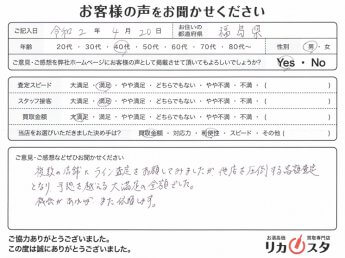 お客様の声をお聞かせください
ご記入日 令和2年4月20日 お住いの都道府県 福島県
年齢 20代・30代・40代・50代・60代・70代・80代〜 性別 男・女
ご意見・ご感想を弊社ホームページにお客様の声として掲載させて頂いてもよろしいでしょうか? Yes・No
査定スピード 大満足・満足・やや満足・どちらでもない・やや不満・不満・( )
スタッフ接客 大満足・満足・やや満足・どちらでもない・やや不満・不満・( )
買取金額 大満足・満足・やや満足・どちらでもない・やや不満・不満・( )
当店をお選びいただきました決め手は? 買取金額・対応力・利便性・スピード・その他( )
ご意見・ご感想などぜひお聞かせください
複数の店舗にライン査定をお願いしてみましたが他店を圧倒する高額査定
となり予想を越える大満足の金額でした。
機会があれば また依頼します。
ご協力ありがとうございました。
この度は誠にありがとうございました。
お酒高価買取専門店
リカスタ